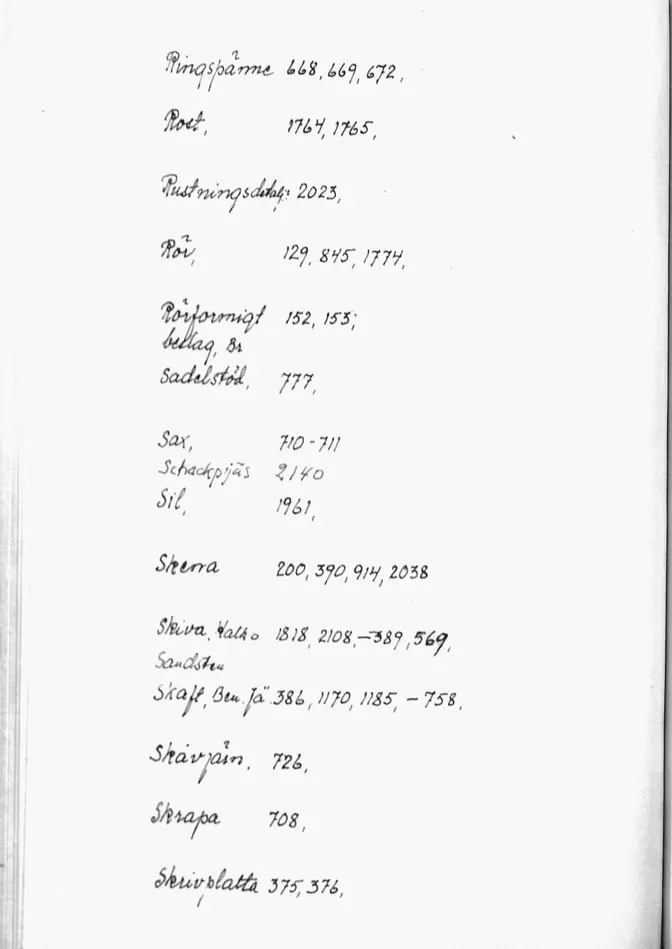 Ringspänne 668, 669, 672,
Rost, 1764, 1765,
Rustningsdetalj: 2023,
Rör, 129, 845, 1774,
Rörformigt 152, 153;
beslag, Br
Sadelstöd, 777,
Sax, 710-711
Schackpjäs 2140
Sil, 1961,
Skena 200, 390, 914, 2038
Skiva, Kalk o 1818, 2108, -389, 569,
Sandsten
Skaft, Ben. Jä 386, 1170, 1185, - 758,
Skavjärn, 726,
Skrapa 708,
Skrivplatta 375, 376,